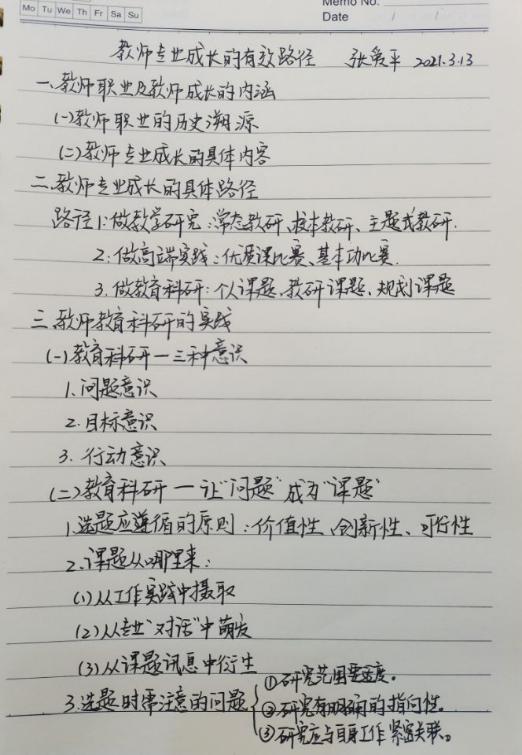 Mo Tu We Th Fr Sa Su
Memo No.
Date
教师专业成长的有效路径 张爱平 2021.3.13
一、教师职业及教师成长的内涵
(一)教师职业的历史溯源
(二)教师专业成长的具体内容
二、教师专业成长的具体路径
路径1:做教学研究:常态教研、校本教研、主题式教研.
2:做高端实践:优质课比赛、基本功比赛.
3.做教育科研:个人课题、教研课题、规划课题
三、教师教育科研的实践
(一)教育科研一三种意识
1.问题意识
2.目标意识
3.行动意识
(二)教育科研一让"问题"成为"课题"
1.选题应遵循的原则:价值性、创新性、可行性
2.课题从哪里来:
(1)从工作实践中摄取
(2)从专业"对话"中萌发
(3)从课题讯息中衍生
3.选题时需注意的问题
①研究范围要适度。
②研究有明确的指向性。
③研究应与自身工作紧密关联。